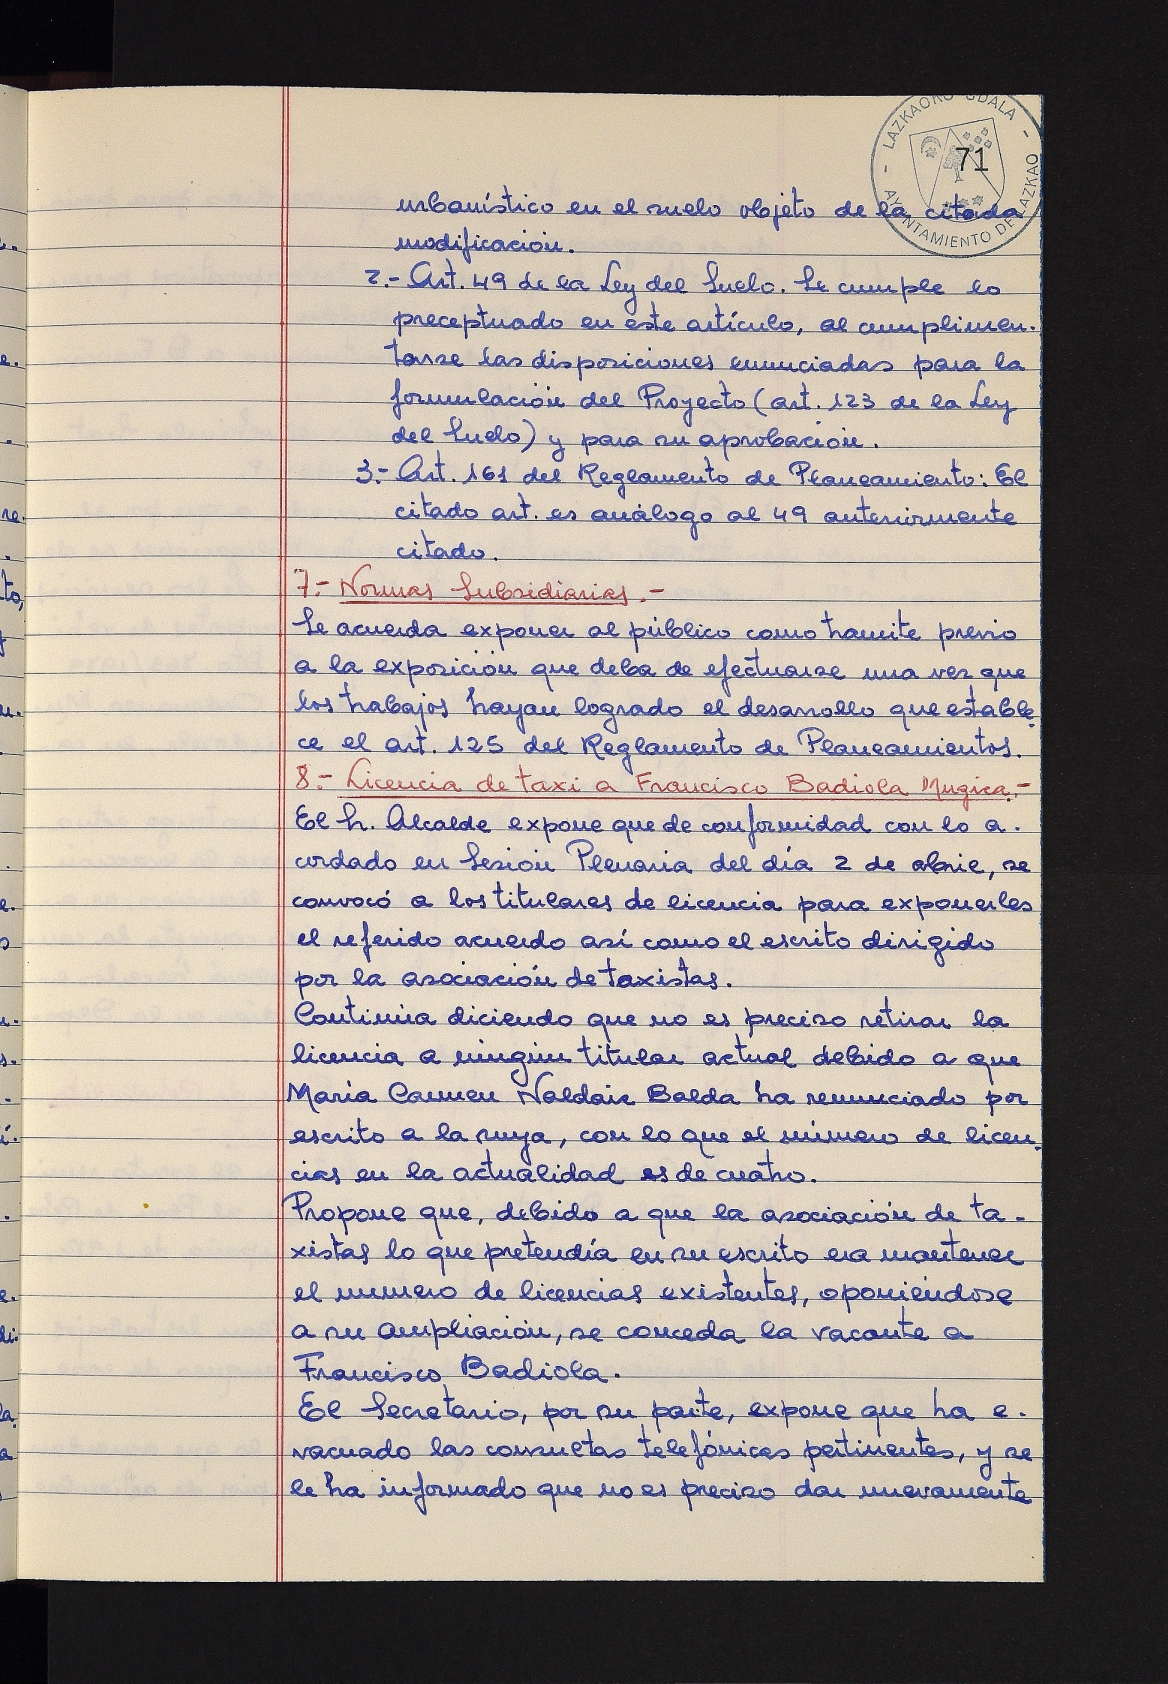 LAZKAOKO UDALA - AYUNTAMIENTO DE LAZKAO -
71
urbanístico en el suelo objeto de la citada
modificación.
2.- Art. 49 de la Ley del Suelo. Se cumple lo
preceptuado en este artículo, al cumplimen-
tarse las disposiciones enunciadas para la
formulación del Proyecto (art. 123 de la Ley
del Suelo) y para su aprobación.
3.- Art. 161 del Reglamento de Planeamiento: El
citado art. es análogo al 49 anteriormente
citado.
7.- Normas Subsidiarias.-
Se acuerda exponer al público como tramite previo
a la exposición que deba de efectuarse una vez que
los trabajos hayan logrado el desarrollo que estable-
ce el art. 125 del Reglamento de Planeamientos.
8.- Licencia de taxi a Francisco Badiola Mugica.-
El Sr. Alcalde expone que de conformidad con lo a-
cordado en Sesión Plenaria del día 2 de abril, se
convocó a los titulares de licencia para exponerles
el referido acuerdo así como el escrito dirigido
por la asociación de taxistas.
Continúa diciendo que no es preciso retirar la
licencia a ningún titular actual debido a que
Maria Carmen Naldaiz Balda ha renunciado por
escrito a la suya, con lo que el número de licen-
cias en la actualidad es de cuatro.
Propone que, debido a que la asociación de ta-
xistas lo que pretendía en su escrito era mantener
el numero de licencias existentes, oponiéndose
a su ampliación, se conceda la vacante a
Francisco Badiola.
El Secretario, por su parte, expone que ha e-
vacuado las consultas telefónicas pertinentes, y se
le ha informado que no es preciso dar nuevamente